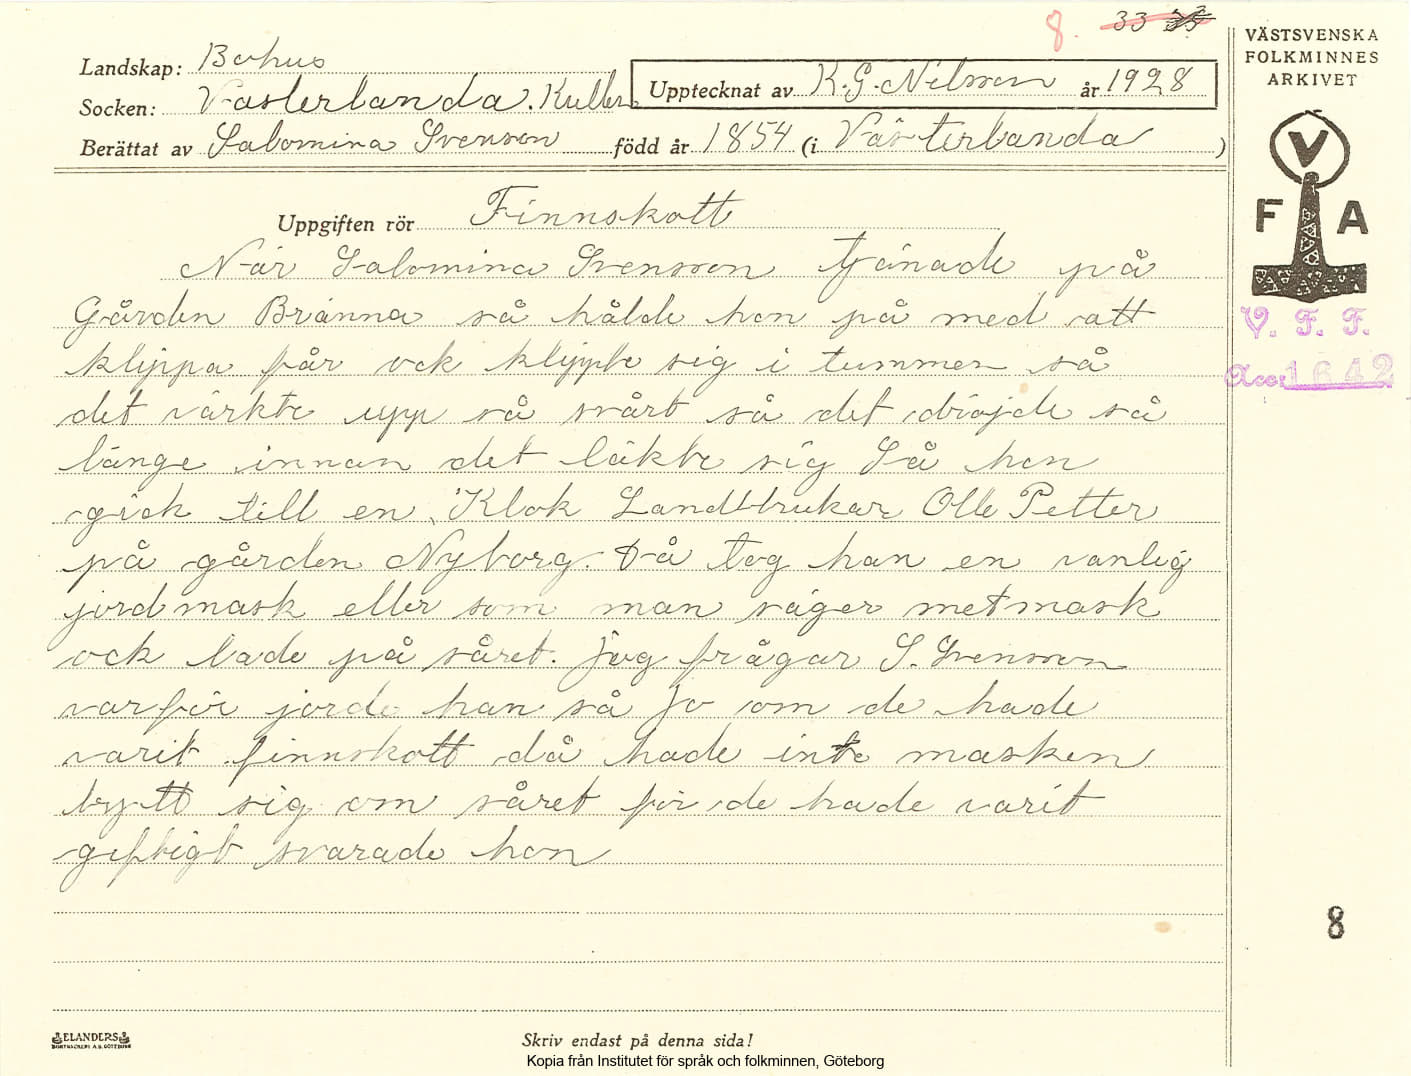 8. 33
VÄSTSVENSKA
FOLKMINNES
ARKIVET
Landskap: Bohus
Socken: Västerlanda. Kullen
Upptecknat av K.G. Nilsson år 1928
Berättat av Salomina Svenson född år 1854 (i Västerlanda )
V
F A
V. F. F.
Acc: 1642
Uppgiften rör Finnskott
När Salomina Svensson tjänade på
Gården Bränna så hålde hon på med att
klippa får ock klippte sig i tummen så
det värkte upp så svårt så det dröjde så
länge innan det läkte sig Så hon
gick till en Klok Landtbrukare Olle Petter
på gården Nyborg. Då tog han en vanlig
jordmask eller som man säger metmask
ock lade på såret. Jag frågar S. Svensson
varför jorde han så Jo om de hade
varit finnskott då hade inte masken
bytt sig om såret för de hade varit
geftigt svarade hon
8
ELANDERS
BOKTRYCKERI A.B. GÖTEBORG
Skriv endast på denna sida!
Kopia från Institutet för språk och folkminnen, Göteborg